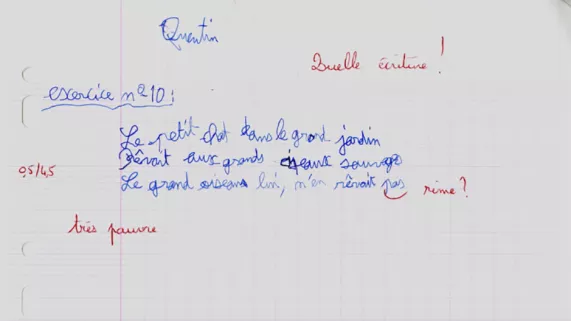 Quentin
Quelle écriture !
exercice n°10 :
Le petit chat dans le grand jardin
Rêvait aux grands oiseaux sauvages
0,5/4,5
Le grand oiseau lui, n'en rêvait pas rime ?
très pauvre